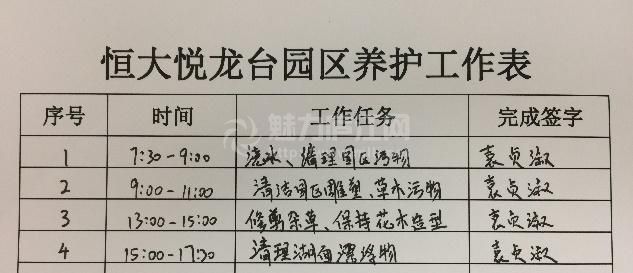 恒大悦龙台园区养护工作表
序号 时间 工作任务 完成签字
1 7:30-9:00 浇水、清理园区污物 袁贞淑
2 9:00-11:00 清洁园区雕塑、草木污物 袁贞淑
3 13:00-15:00 修剪杂草、保持花木造型 袁贞淑
4 15:00-17:30 清理湖面漂浮物 袁贞淑